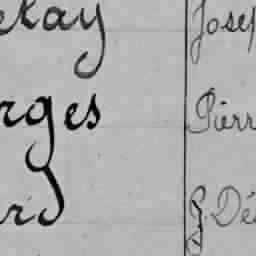 elay Josep
rges Pierr
rd G. Dés